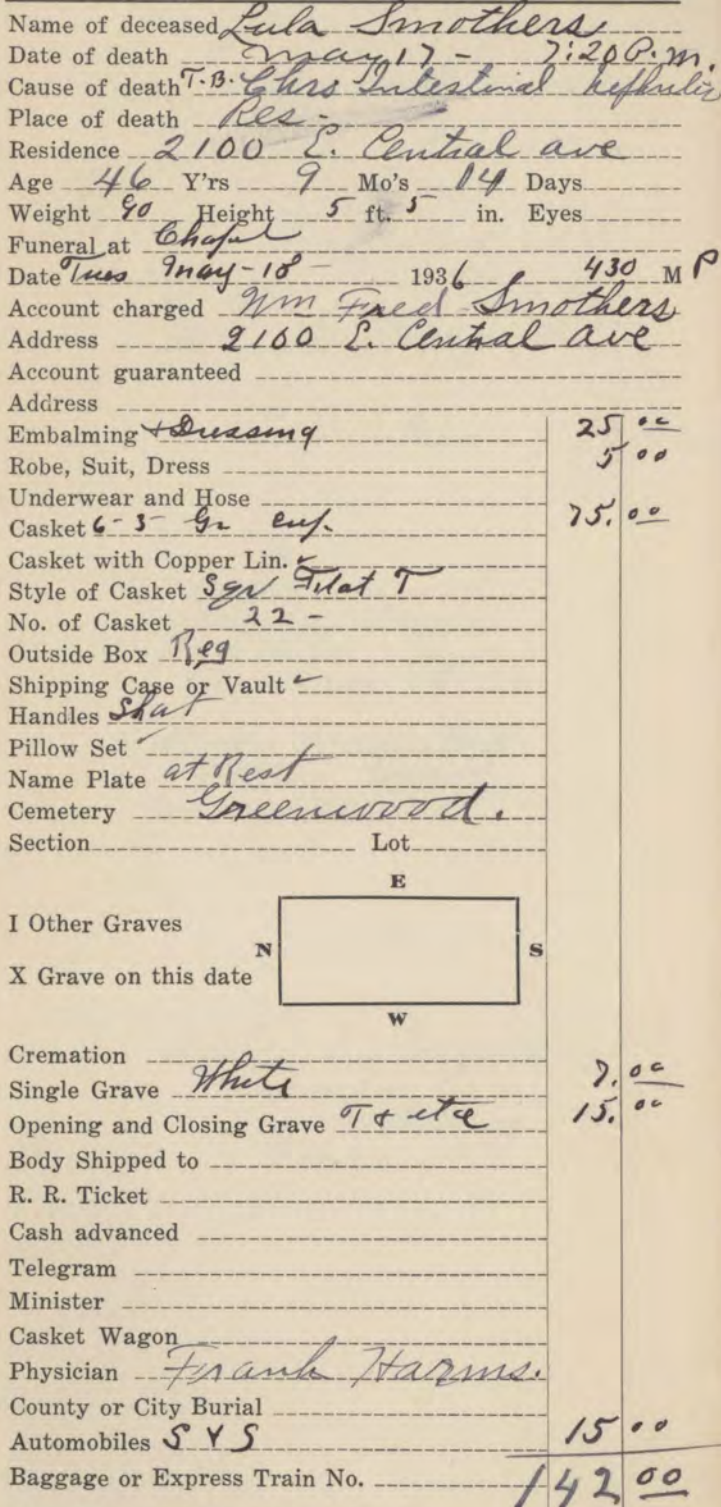 Name of deceased Lula Smothers
Date of death May 17 - 7:20 P.m.
Cause of death T.B. Chro Intestinal Nephritis
Place of death Res -
Residence 2100 E. Central ave
Age 46 Y'rs 9 Mo's 14 Days
Weight 90 Height 5 ft. 5 in. Eyes
Funeral at Chapel
Date Tues May - 18 - 1936 430 M P
Account charged Wm Fred Smothers
Address 2100 E. Central ave
Account guaranteed
Address
Embalming + Dressing 25 00
Robe, Suit, Dress 5 00
Underwear and Hose
Casket 6-3 Gr 75. 00
Casket with Copper Lin.
Style of Casket Sqr Flat T
No. of Casket 22 -
Outside Box Reg
Shipping Case or Vault
Handles
Pillow Set
Name Plate at Rest
Cemetery Greenwood.
Section Lot
E
I Other Graves
N S
X Grave on this date
W
Cremation
Single Grave White 7. 00
Opening and Closing Grave T & etc 15. 00
Body Shipped to
R. R. Ticket
Cash advanced
Telegram
Minister
Casket Wagon
Physician Frank Harms.
County or City Burial
Automobiles S Y S 15 00
Baggage or Express Train No. 142 00